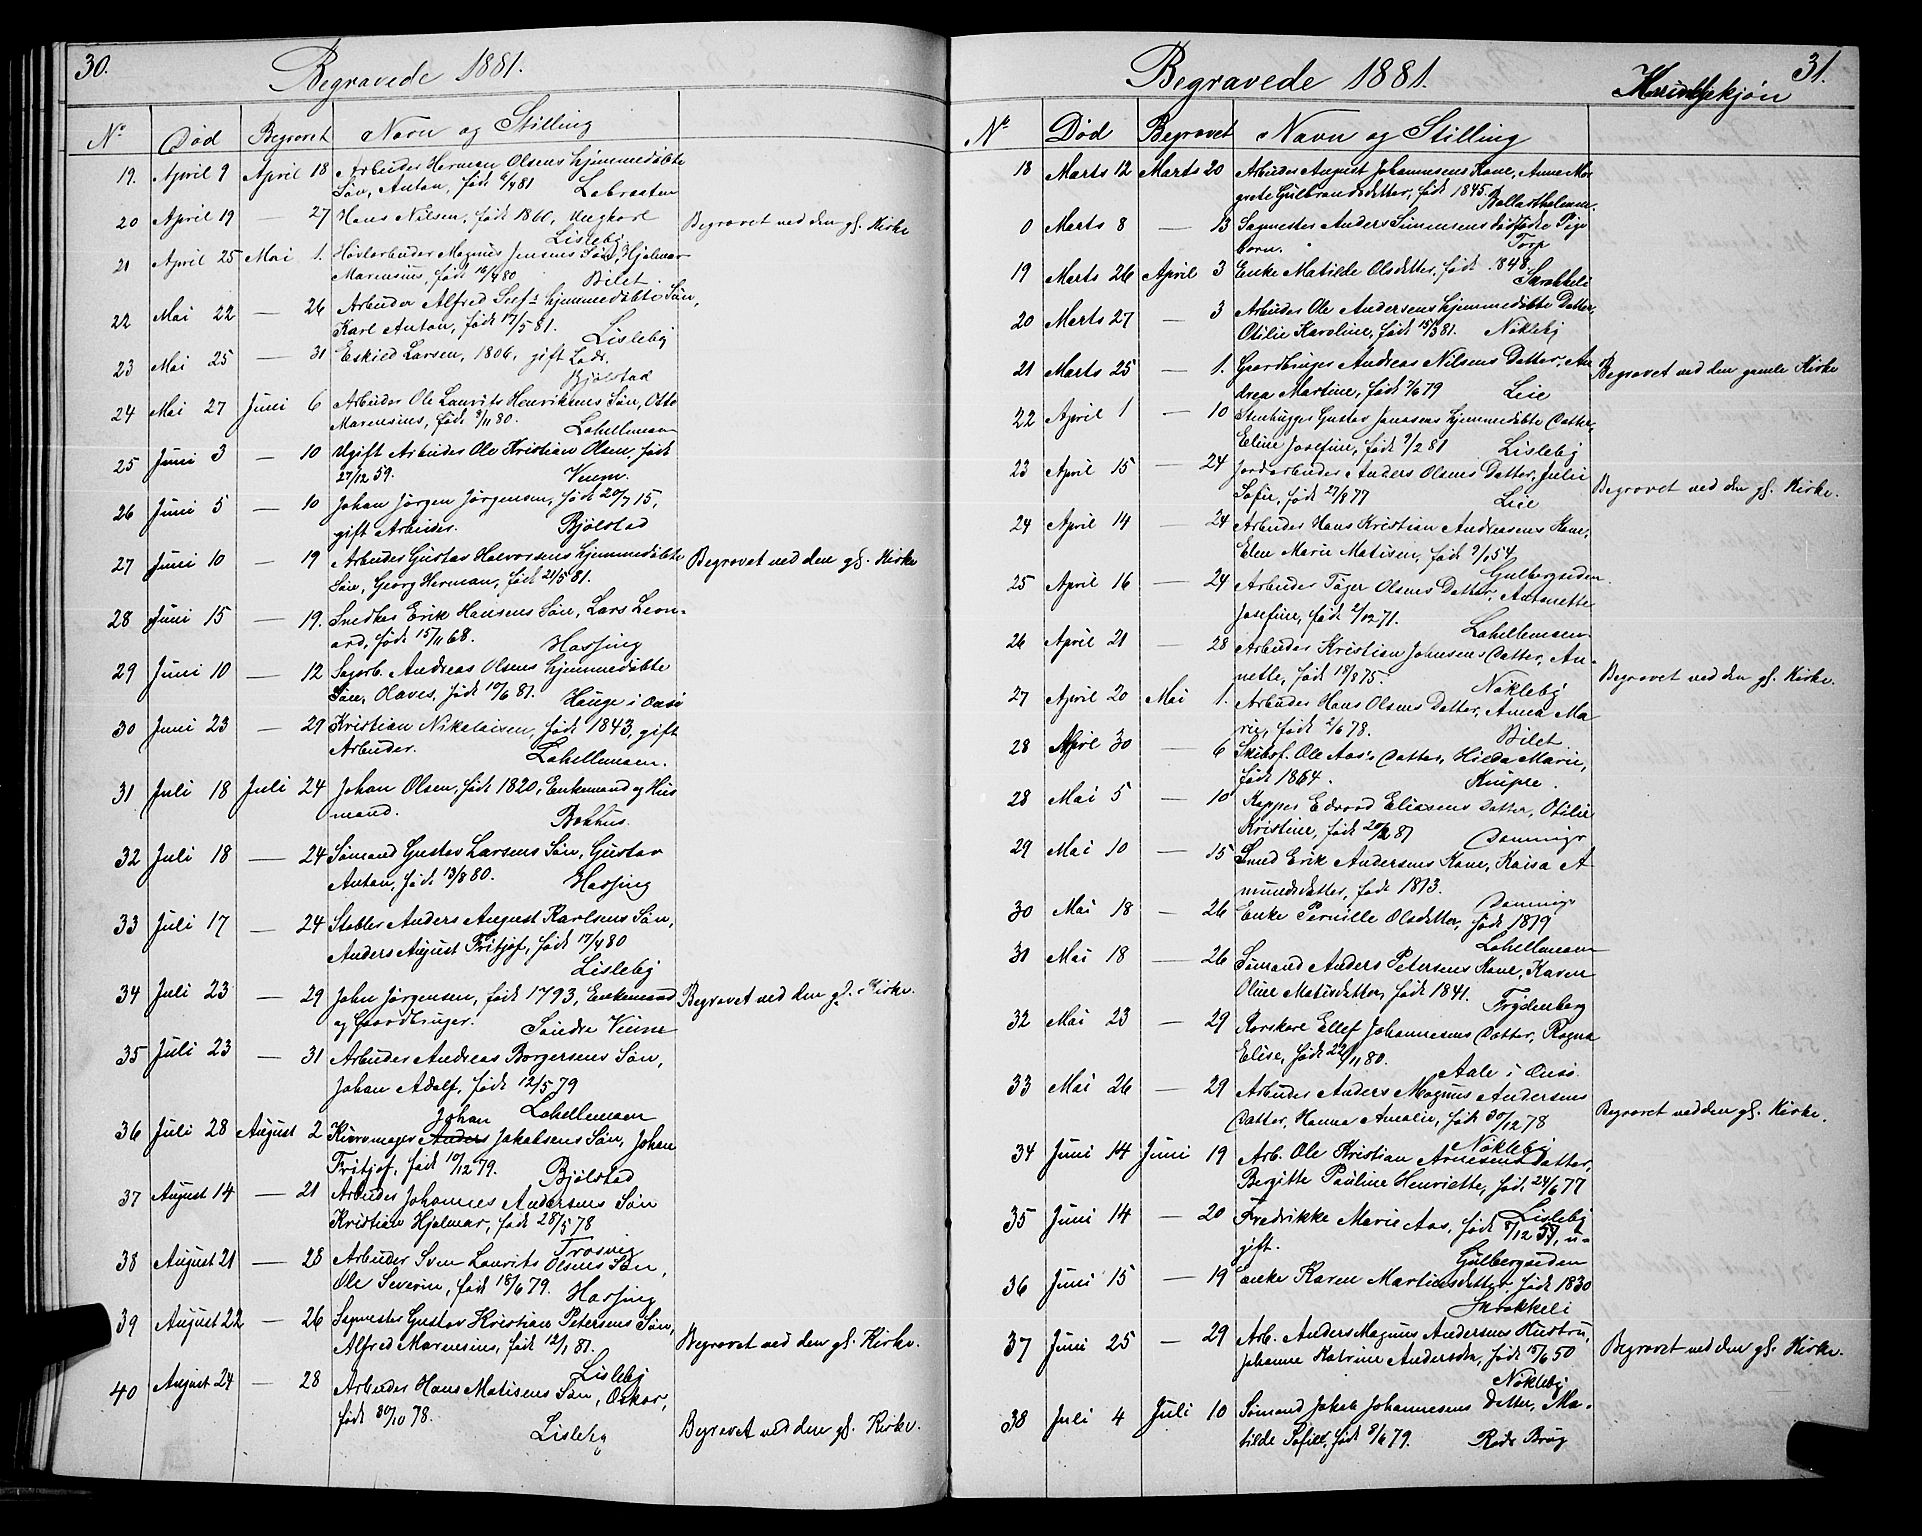 30.
Begravede 1881.
No Død Begravet Navn og Stilling
19. April 9 April 18 Arbeider Herman Olsens hjemmedøbte
Søn, Anton, født 6/4 81
20 April 19 — 27 Hans Nilsen, født 1860, Ungkarl Begravet ved den gl. Kirke
Lisleby
21 April 25 Mai 1. Høvlarbeider Magnus Jensens Søn, Hjalmar
Marensius, født 16/4 80 Bilet
22 Mai 22 — 26 Arbeider Alfred hjemmedøbte Søn,
Karl Anton, født 17/5 81. Lisleby
23 Mai 25 — 31 Eskild Larsen, 1806, gift Lods.
Bjølstad
24 Mai 27 Juni 6 Arbeider Ole Laurits Henriksens Søn, Otto
Marensius, født 9/11 80. Lahellemoen
25 Juni 3 — 10 Ugift Arbeider Ole Kristian Olsen, født
27/12 59. Veum.
26 Juni 5 — 10 Johan Jørgen Jørgensen, født 20/7 15,
gift Arbeider. Bjølstad
27 Juni 10 — 19 Arbeider Gustav Halvorsens hjemmedøbte Begravet ved den gl. Kirke
Søn, Georg Herman, født 21/5 81.
28 Juni 15 — 19. Snedker Erik Hansens Søn, Lars Leon-
ard, født 15/11 68. Hassing
29 Juni 10 — 12 Sagarb. Andreas Olsens hjemmedøbte
Søn, Olaves, født 10/6 81. Hauge i Onsø
30 Juni 23 — 29 Kristian Nikolaisen, født 1843, gift
Arbeider. Lahellemoen.
31 Juli 18 Juli 24 Johan Olsen, født 1820, Enkemand og Hus
mand. Bakhus.
32 Juli 18 — 24 Sømand Gustav Larsens Søn, Gustav
Anton, født 13/8 80. Hassing
33 Juli 17 — 24 Stabler Anders August Karlsens Søn,
Anders August Fritjof, født 17/4 80
Lisleby
34 Juli 23 — 29 John Jørgensen, født 1793, Enkemand Begravet ved den gl. Kirke.
og Gaardbruger. Søndre Veum
35 Juli 23 — 31 Arbeider Andreas Borgersens Søn,
Johan Adolf, født 12/5 79
Lahellemoen
Johan
36 Juli 28 August 2 Kurvmager Anders Jakobsens Søn, Johan
Fritjof, født 10/12 79. Bjølstad
37 August 14 — 21 Arbeider Johannes Andersens Søn
Kristian Hjalmar, født 28/5 78
Trosvig
38 August 21 — 28 Arbeider Sven Laurits Olsens Søn,
Ole Severin, født 18/6 79. Hassing
39 August 22 — 26 Sagmester Gustav Kristian Petersens Søn,
Alfred Marensius, født 12/1 81. Begravet ved den gl. Kirke.
Lisleby
40 August 24 — 28 Arbeider Hans Matisens Søn, Oskar,
født 30/10 78. Begravet ved den gl. Kirke.
Lisleby
31.
Begravede 1881.
No Død Begravet Navn og Stilling
18 Marts 12 Marts 20 Arbeider August Johannesens Kone, Anne Mar
grete Gulbrandsdatter, født 1845.
0 Marts 8 — 13 Sagmester Anders Simensens dødfødte Pige
barn. Torp
19 Marts 26 April 3 Enke Matilde Olsdatter, født 1848.
20 Marts 27 — 3 Arbeider Ole Andersens hjemmedøbte Datter,
Otilie Karoline, født 15/3 81. Nøkleby
21 Marts 25 — 1. Gaardbruger Andreas Nilsens Datter, An Begravet ved den gamle Kirke
drea Martine, født 7/6 79 Lie
22 April 1 — 10 Stenhugger Gustav Jonassens hjemmedøbte Datter,
Eline Josefine, født 9/2 81 Lisleby
23 April 15 — 24 Jordarbeider Anders Olsens Datter, Julie
Sofie, født 27/8 77 Lie Begravet ved den gl. Kirke.
24 April 14 — 24 Arbeider Hans Kristian Andreasens Kone,
Elen Marie Matisen, født 54.
Gulbergseden.
25 April 16 — 24 Arbeider Tøger Olsens Datter, Antonette
Josefine, født 2/12 71. Lahellemoen
26 April 21 — 28 Arbeider Kristian Johnsens Datter, An-
nette, født 18/8 75. Nøkleby Begravet ved den gl. Kirke.
27 April 20 Mai 1. Arbeider Hans Olsens Datter, Anna Ma
rie, født 2/6 78. Bilet
28 April 30 — 6 Skibsf. Ole Aas's Datter, Hilda Marie,
født 1864. Knipre.
28 Mai 5 — 10 Kopper Edvard Eliasens Datter, Otilie
Kristine, født 81
29 Mai 10 — 15 Smed Erik Andersens Kone, Kaisa A
mundsdatter, født 1813.
30 Mai 18 — 26 Enke Pernille Olsdatter, født 1819
Lahellemoen
31 Mai 18 — 26 Sømand Anders Petersens Kone, Karen
Oline Matisdatter, født 1841. Frydenberg
32 Mai 23 — 29 Korskarl Ellef Johannesens Datter, Ragna
Elise, født 22/11 80. Aale i Onsø.
33 Mai 26 — 29 Arbeider Anders Magnus Andersens
Datter, Hanna Amalie, født 30/12 78 Begravet ved den gl. Kirke.
Nøkleby
34 Juni 14 Juni 19 Arb. Ole Kristian Arnesens Datter,
Begitte Pauline Henriette, født 24/6 77
Lisleby
35 Juni 14 — 20 Fredrikke Marie Aas, født 8/12 57, u-
gift. Gulbergseden
36 Juni 15 — 19 Enke Karen Martinsdatter, født 1830
37 Juni 25 — 29 Arb. Anders Magnus Andersens Hustru, Begravet ved den gl. Kirke.
Johanne Katrine Andersdtr, født 15/6 50
Nøkleby
38 Juli 4 Juli 10 Sømand Jakob Johannesens Datter, Ma-
tilde Sofie, født 8/6 79. Røds Brug